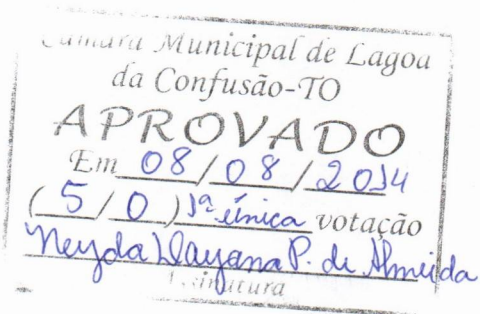 Câmara Municipal de Lagoa
da Confusão-TO
APROVADO
Em 08/08/2014
(5/0) 1ª única votação
Neyda Dayana P. de Almeida
Assinatura